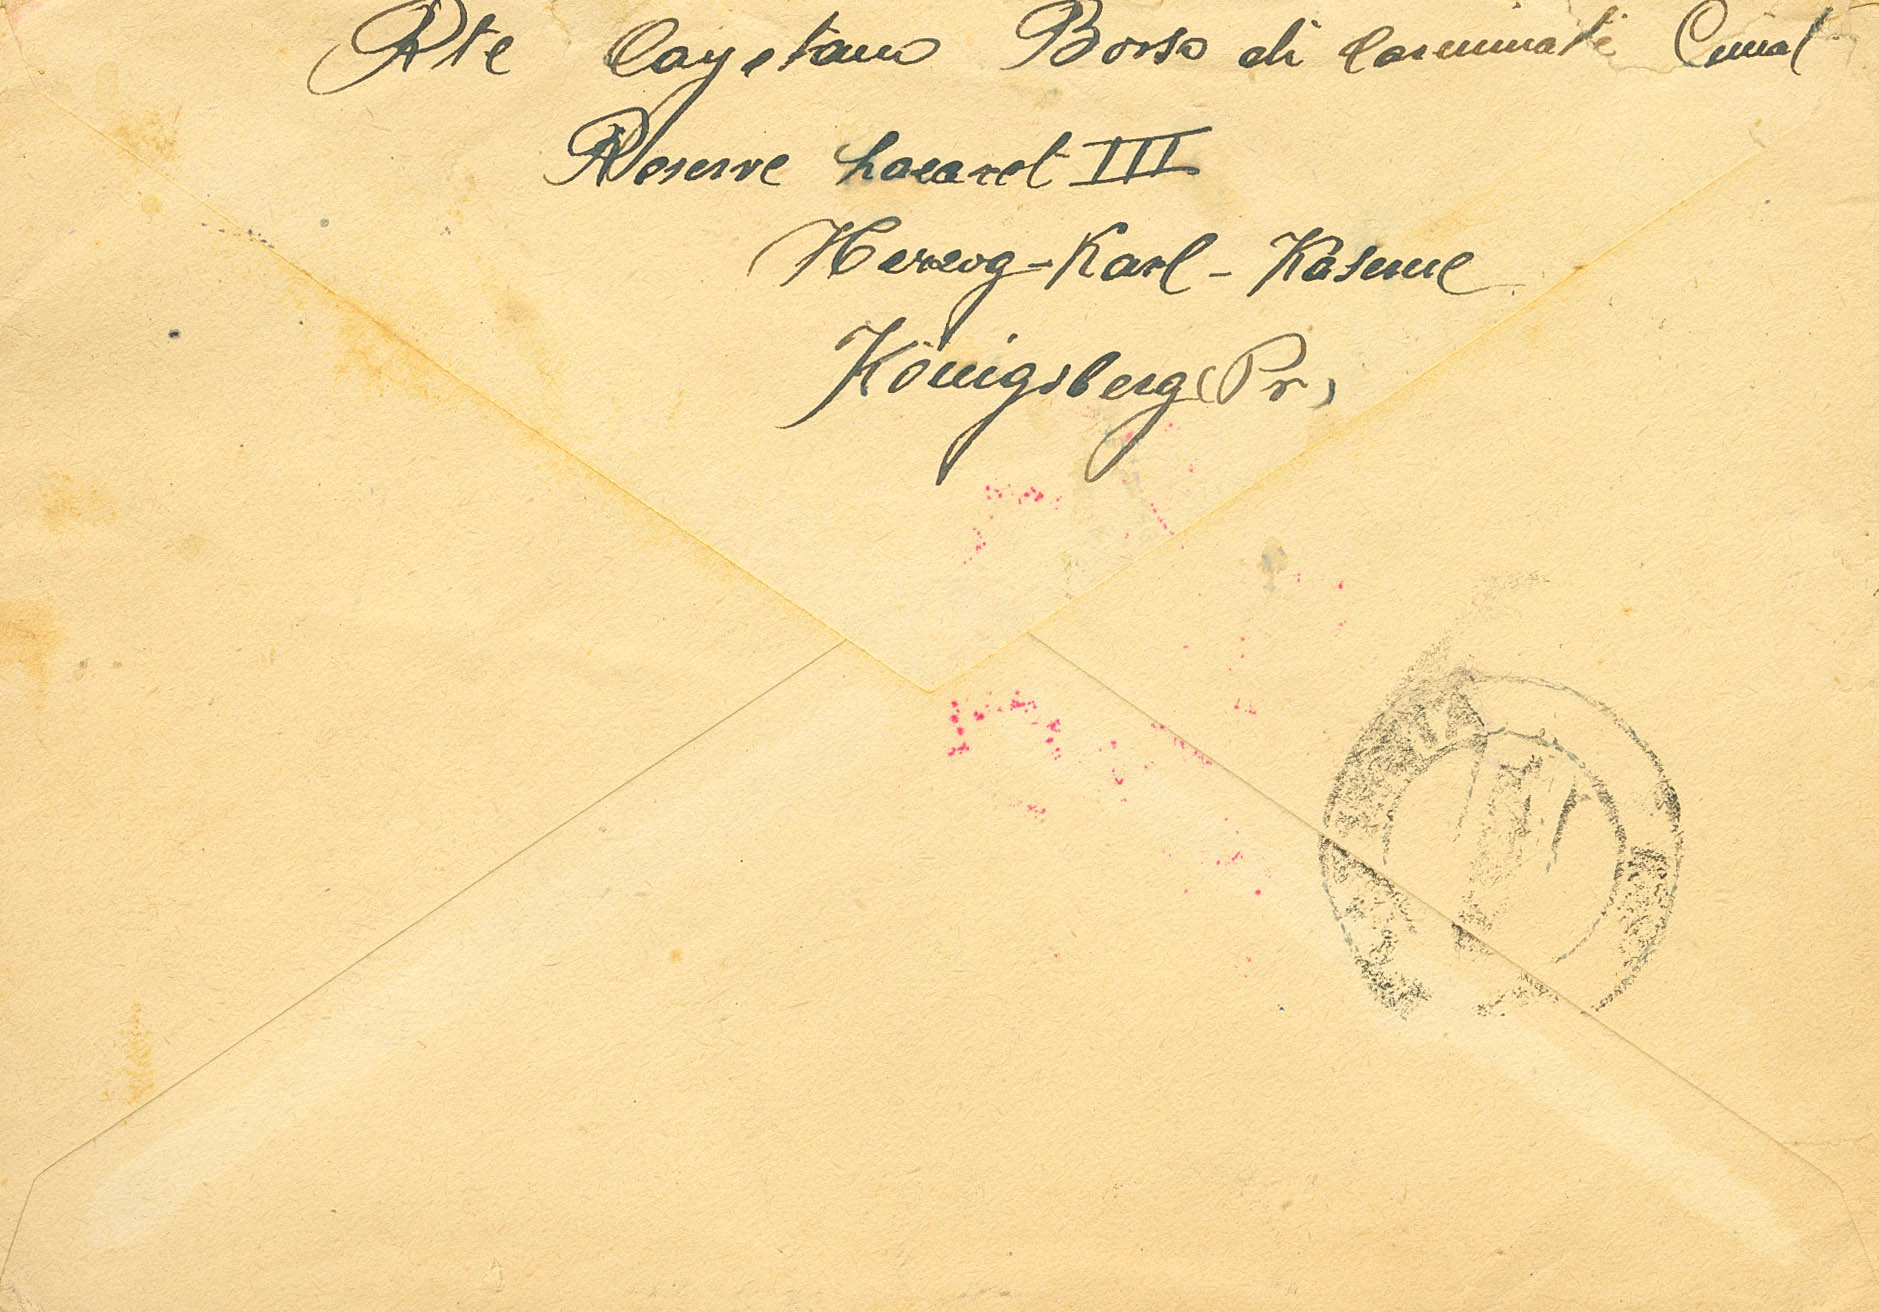 Rte Cayetano Borso di Carminati
Reserve Lazaret III
Herzog-Karl-Kaserne
Königsberg (Pr)